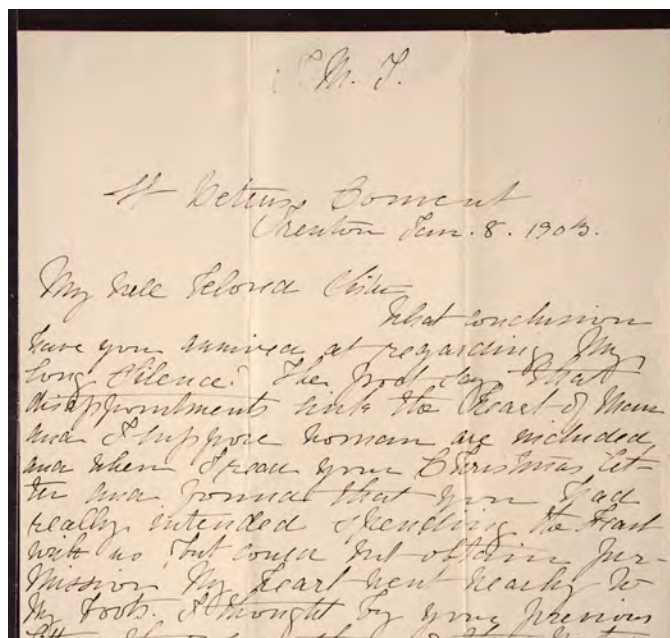 J. M. J.
St Peters Convent
Trenton Jan. 8. 1903.
My well beloved Child
What conclusion
have you arrived at regarding My
long Silence? The poet say that
disappointments sink the heart of Man
and I suppose woman are included,
and when I read your Christmas let-
ter and found that you had
really intended spending the Feast
with us, but could not obtain per-
mission My heart went nearly to
My boots. I thought by your previous